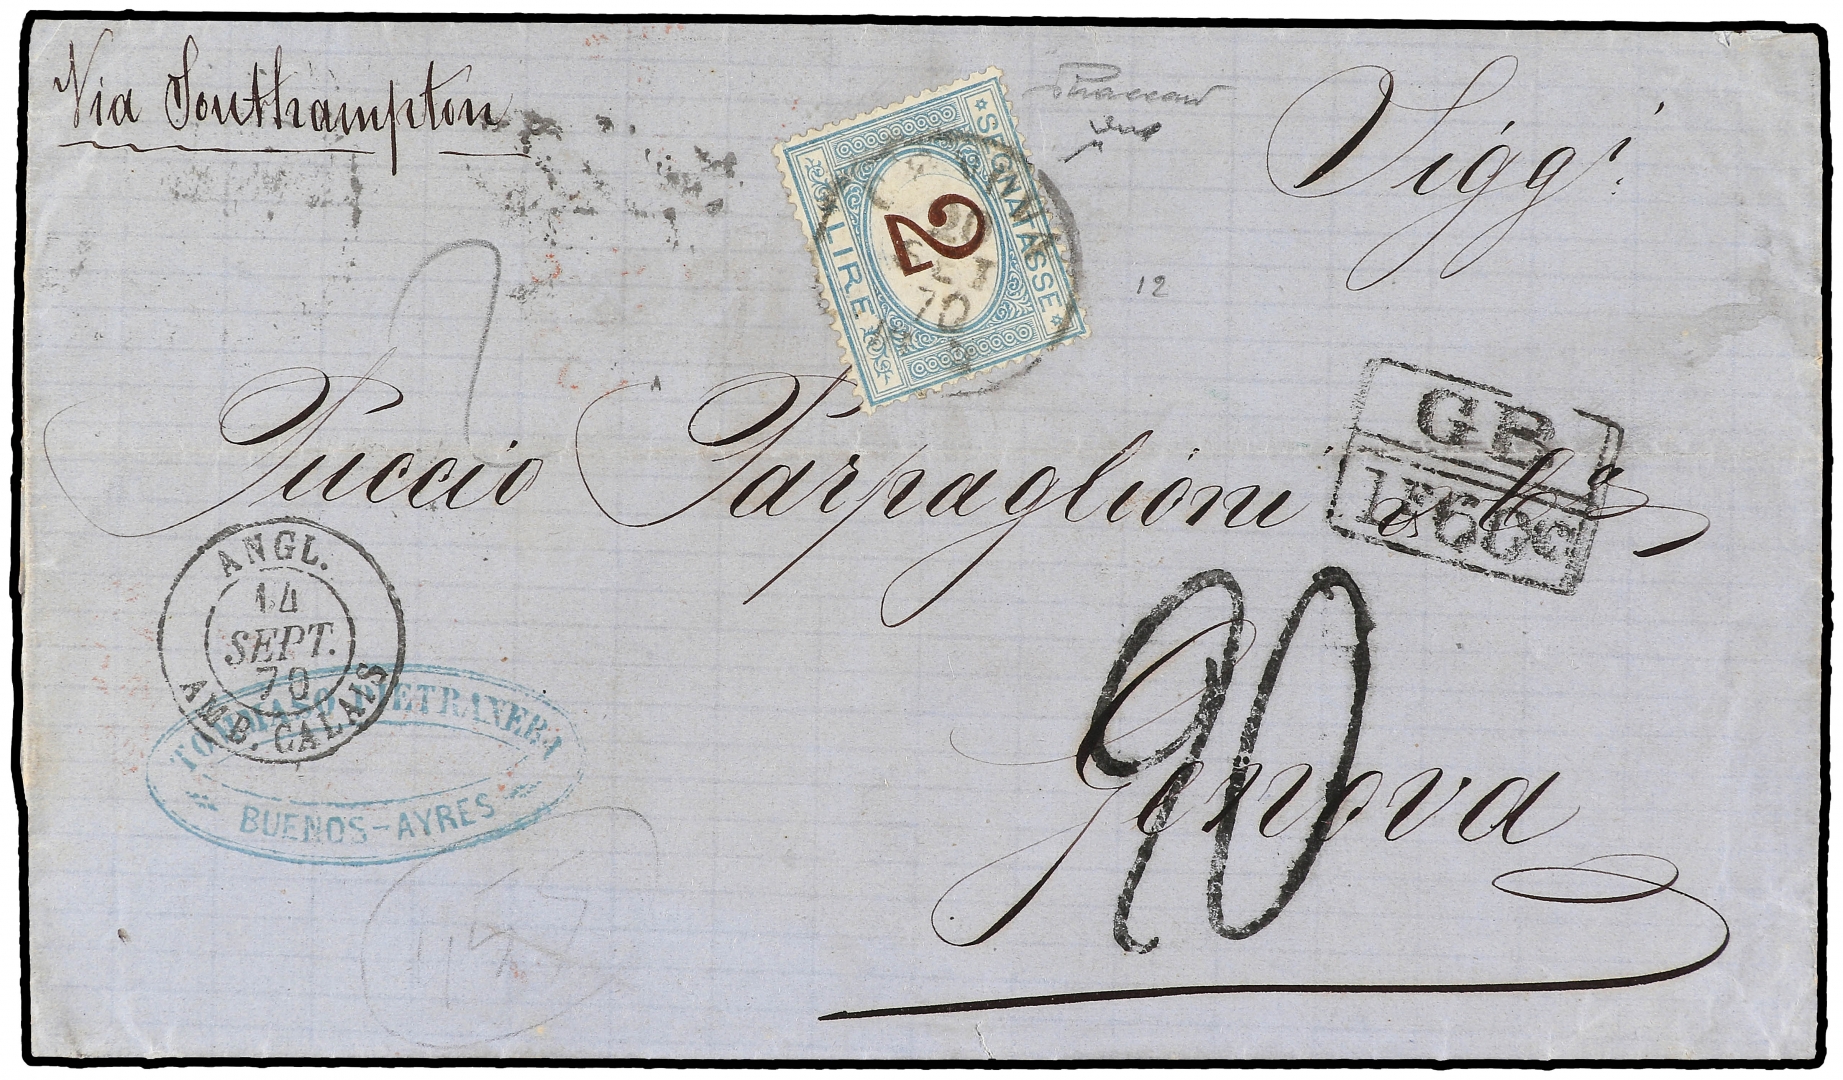 Via Southampton
SEGNATASSE
2
LIRE
SET
70
12
Sigg.i
GB
1F60C
Puccio Parpaglioni & C.o
ANGL.
14
SEPT.
70
AMB. CALAIS
TOMMASO PIETRANERA
BUENOS-AYRES
20
Genova